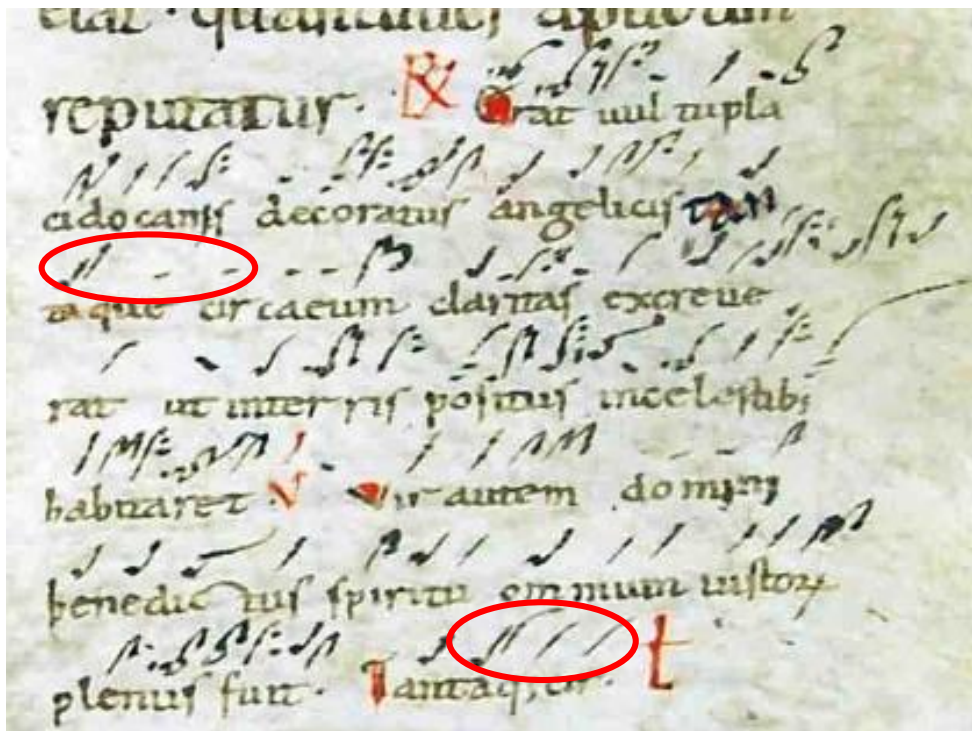 reputatus. R Erat uultu pla
cido canis decoratus angelicis tan
taque circa eum claritas excreue
rat ut in terris positus in celestibus
habitaret. V Vir autem domini
benedictus spiritu omnium iustorum
plenus fuit. Tantaq; cir. t